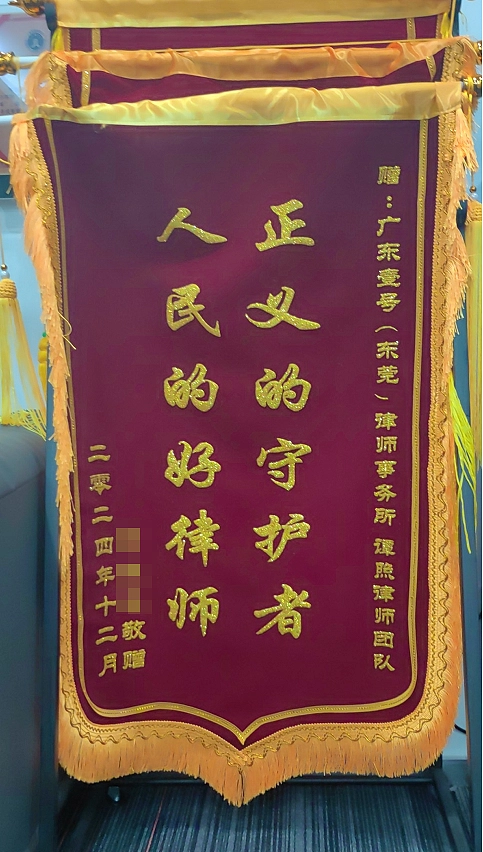 赠：广东壹号（东莞）律师事务所 谭照律师团队
正义的守护者
人民的好律师
敬赠
二零二四年十二月